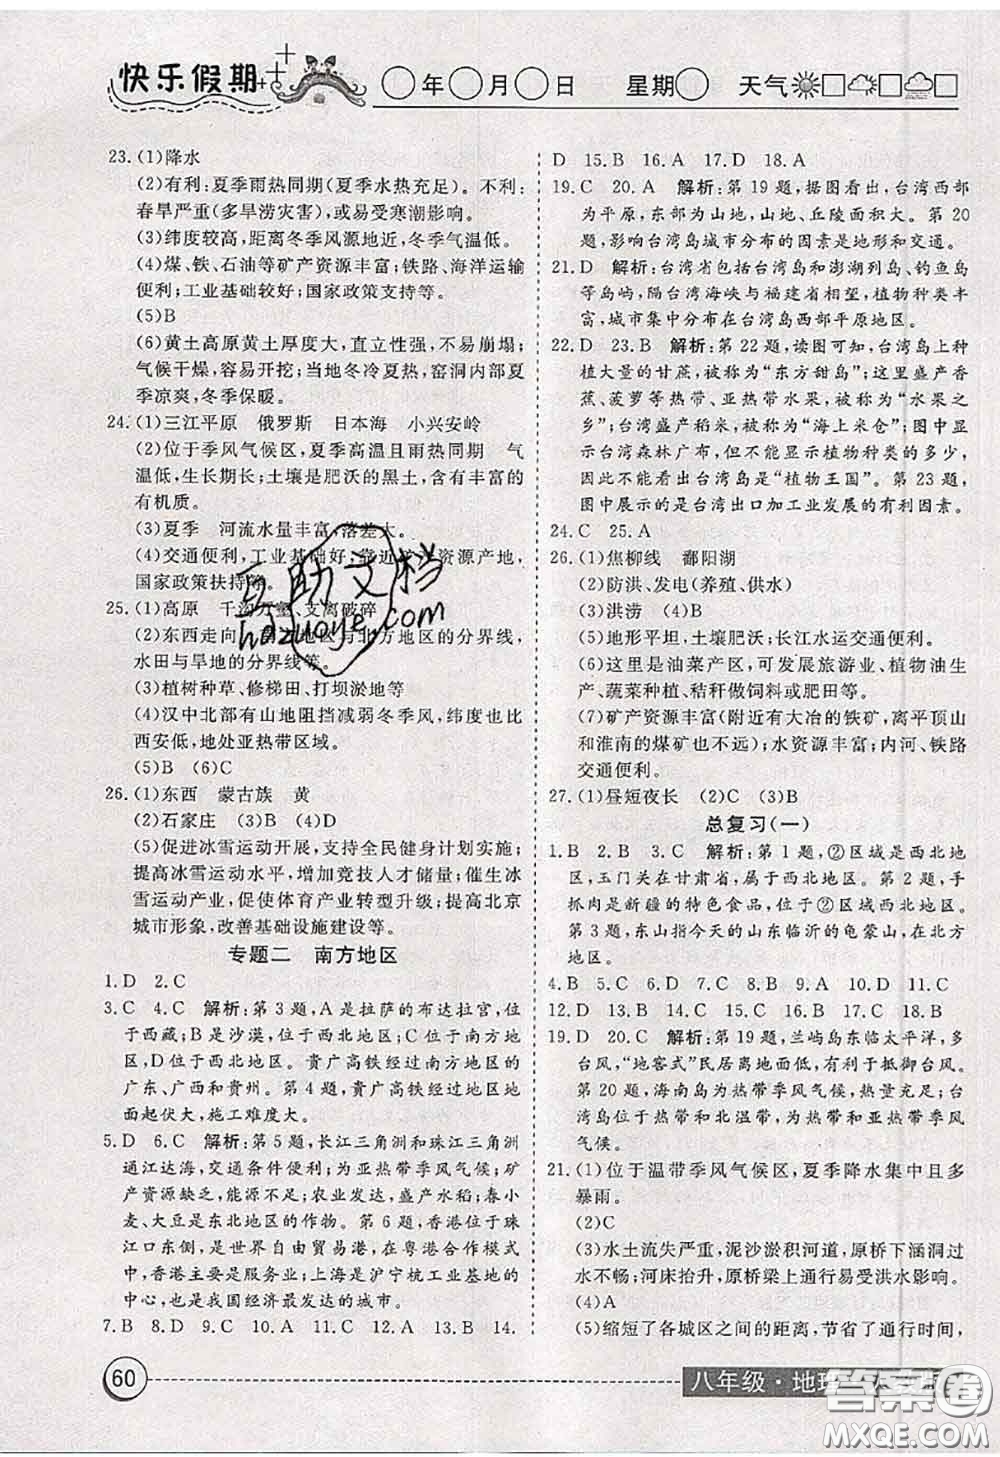 快乐假期
年 月 日 星期 天气
23.(1)降水
(2)有利:夏季雨热同期(夏季水热充足)。不利:
春旱严重(多旱涝灾害),或易受寒潮影响。
(3)纬度较高,距离冬季风源地近,冬季气温低。
(4)煤、铁、石油等矿产资源丰富;铁路、海洋运输
便利;工业基础较好;国家政策支持等。
(5)B
(6)黄土高原黄土厚度大,直立性强,不易崩塌;
气候干燥,容易开挖;当地冬冷夏热,窑洞内冬暖
夏凉爽,冬季保暖。
24.(1)三江平原 俄罗斯 日本海 小兴安岭
(2)位于季风气候区,夏季高温且雨热同期 气
温低,生长期长;土壤是肥沃的黑土,含有丰富的
有机质。
(3)夏季 河流水量丰富,落差大。
(4)交通便利,工业基础好;靠近 资源产地,
国家政策扶持等。
25.(1)高原 千沟万壑、支离破碎
(2)东西走向 地区与北方地区的分界线,
水田与旱地的分界线等。
(3)植树种草、修梯田、打坝淤地等
(4)汉中北部有山地阻挡减弱冬季风,纬度也比
西安低,地处亚热带区域。
(5)B (6)C
26.(1)东西 蒙古族 黄
(2)石家庄 (3)B (4)D
(5)促进冰雪运动开展,支持全民健身计划实施;
提高冰雪运动水平,增加竞技人才储量;催生冰
雪运动产业,促使体育产业转型升级;提高北京
城市形象,改善基础设施建设等。
专题二 南方地区
1.D 2.C
3.C 4.C 解析:第3题,A是拉萨的布达拉宫,位
于西藏;B是沙漠,位于西北地区;C位于南方地
区,D位于西北地区。贵广高铁经过南方地区的
广东、广西和贵州。第4题,贵广高铁经过地地
面起伏大,施工难度大。
5.D 6.C 解析:第5题,长江三角洲和珠江三角洲
通江达海,交通条件便利;均为亚热带季风气候;矿
产资源缺乏,能源不足;农业发达,盛产水稻;春小
麦、大豆是东北地区的作物。第6题,香港位于珠
江口东侧,是世界自由贸易港,在粤港合作模式
中,香港主要是服务业;上海是沪宁杭工业基地的
中心,也是我国经济最发达的城市。
7.B 8.D 9.C 10.C 11.A 12.D 13.B 14.
D 15.B 16.A 17.D 18.A
19.C 20.A 解析:第19题,据图看出,台湾西部
为平原,东部为山地,山地、丘陵面积大。第20
题,影响台湾岛城市分布的因素是地形和交通。
21.D 解析:台湾省包括台湾岛和澎湖列岛、钓鱼岛
等岛屿,隔台湾海峡与福建省相望,植物种类丰
富,城市集中分布在台湾岛西部平原地区。
22.D 23.B 解析:第22题,读图可知,台湾岛上种
植大量的甘蔗,被称为“东方甜岛”;台湾盛产香
蕉、菠萝等热带、亚热带水果,被称为“水果之
乡”;台湾盛产稻米,被称为“海上米仓”;图中显
示台湾森林广布,但不能反映植物种类的多少,
因此不能说明台湾岛是“植物王国”。第23题,
图中展示的是台湾出口加工业发展的有利因素。
24.C 25.A
26.(1)焦柳线 鄱阳湖
(2)防洪、发电(养殖、供水)
(3)洪涝 (4)B
(5)地形平坦,土壤肥沃;长江水运交通便利。
(6)这里是油菜产区,可发展旅游业、植物油生
产、蔬菜种植、秸秆做饲料或肥田等。
(7)矿产资源丰富(附近有大冶的铁矿,离平顶山
和淮南的煤矿也不远);水资源丰富;内河、铁路
交通便利。
27.(1)昼短夜长 (2)C (3)B
总复习(一)
1.B 2.B 3.C 解析:第1题,②区域是西北地
区,玉门关在甘肃省,属于西北地区。第2题,手
抓肉是新疆的特色食品,位于②区域西北地区。
第3题,东山是现今的山东临沂的龟蒙山,在北方
地区。
4.B 5.C 6.C 7.D 8.A 9.B 10.A 11.C
12.D 13.B 14.A 15.D 16.C 17.C 18.B
19.D 20.C 解析:第19题,兰屿岛东临太平洋,多
台风,“地窖式”民居离地面低,有利于抵御台风。
第20题,海南岛为热带季风气候,热量充足;台
湾岛位于热带和北温带,为热带和亚热带季风
气候。
21.(1)位于温带季风气候区,夏季降水集中且多
暴雨。
(2)C
(3)水土流失严重,泥沙淤积河道,原桥下涵洞过
水不畅;河床抬升,原桥梁上通行易受洪水影响。
(4)A
(5)缩短了各城区之间的距离,节省了通行时间,
60
八年级·地理
互助文档
hdzuoye.com
答案卷
MXQE.COM